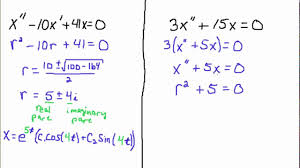 x″ - 10x′ + 41x = 0
r² - 10r + 41 = 0
r = 10 ± √100-164 / 2
r = 5 ± 4i
real part imaginary part
x = e^5t (C₁cos(4t) + C₂ Sin(4t))
3x″ + 15x = 0
3(x″ + 5x) = 0
x″ + 5x = 0
r² + 5 = 0